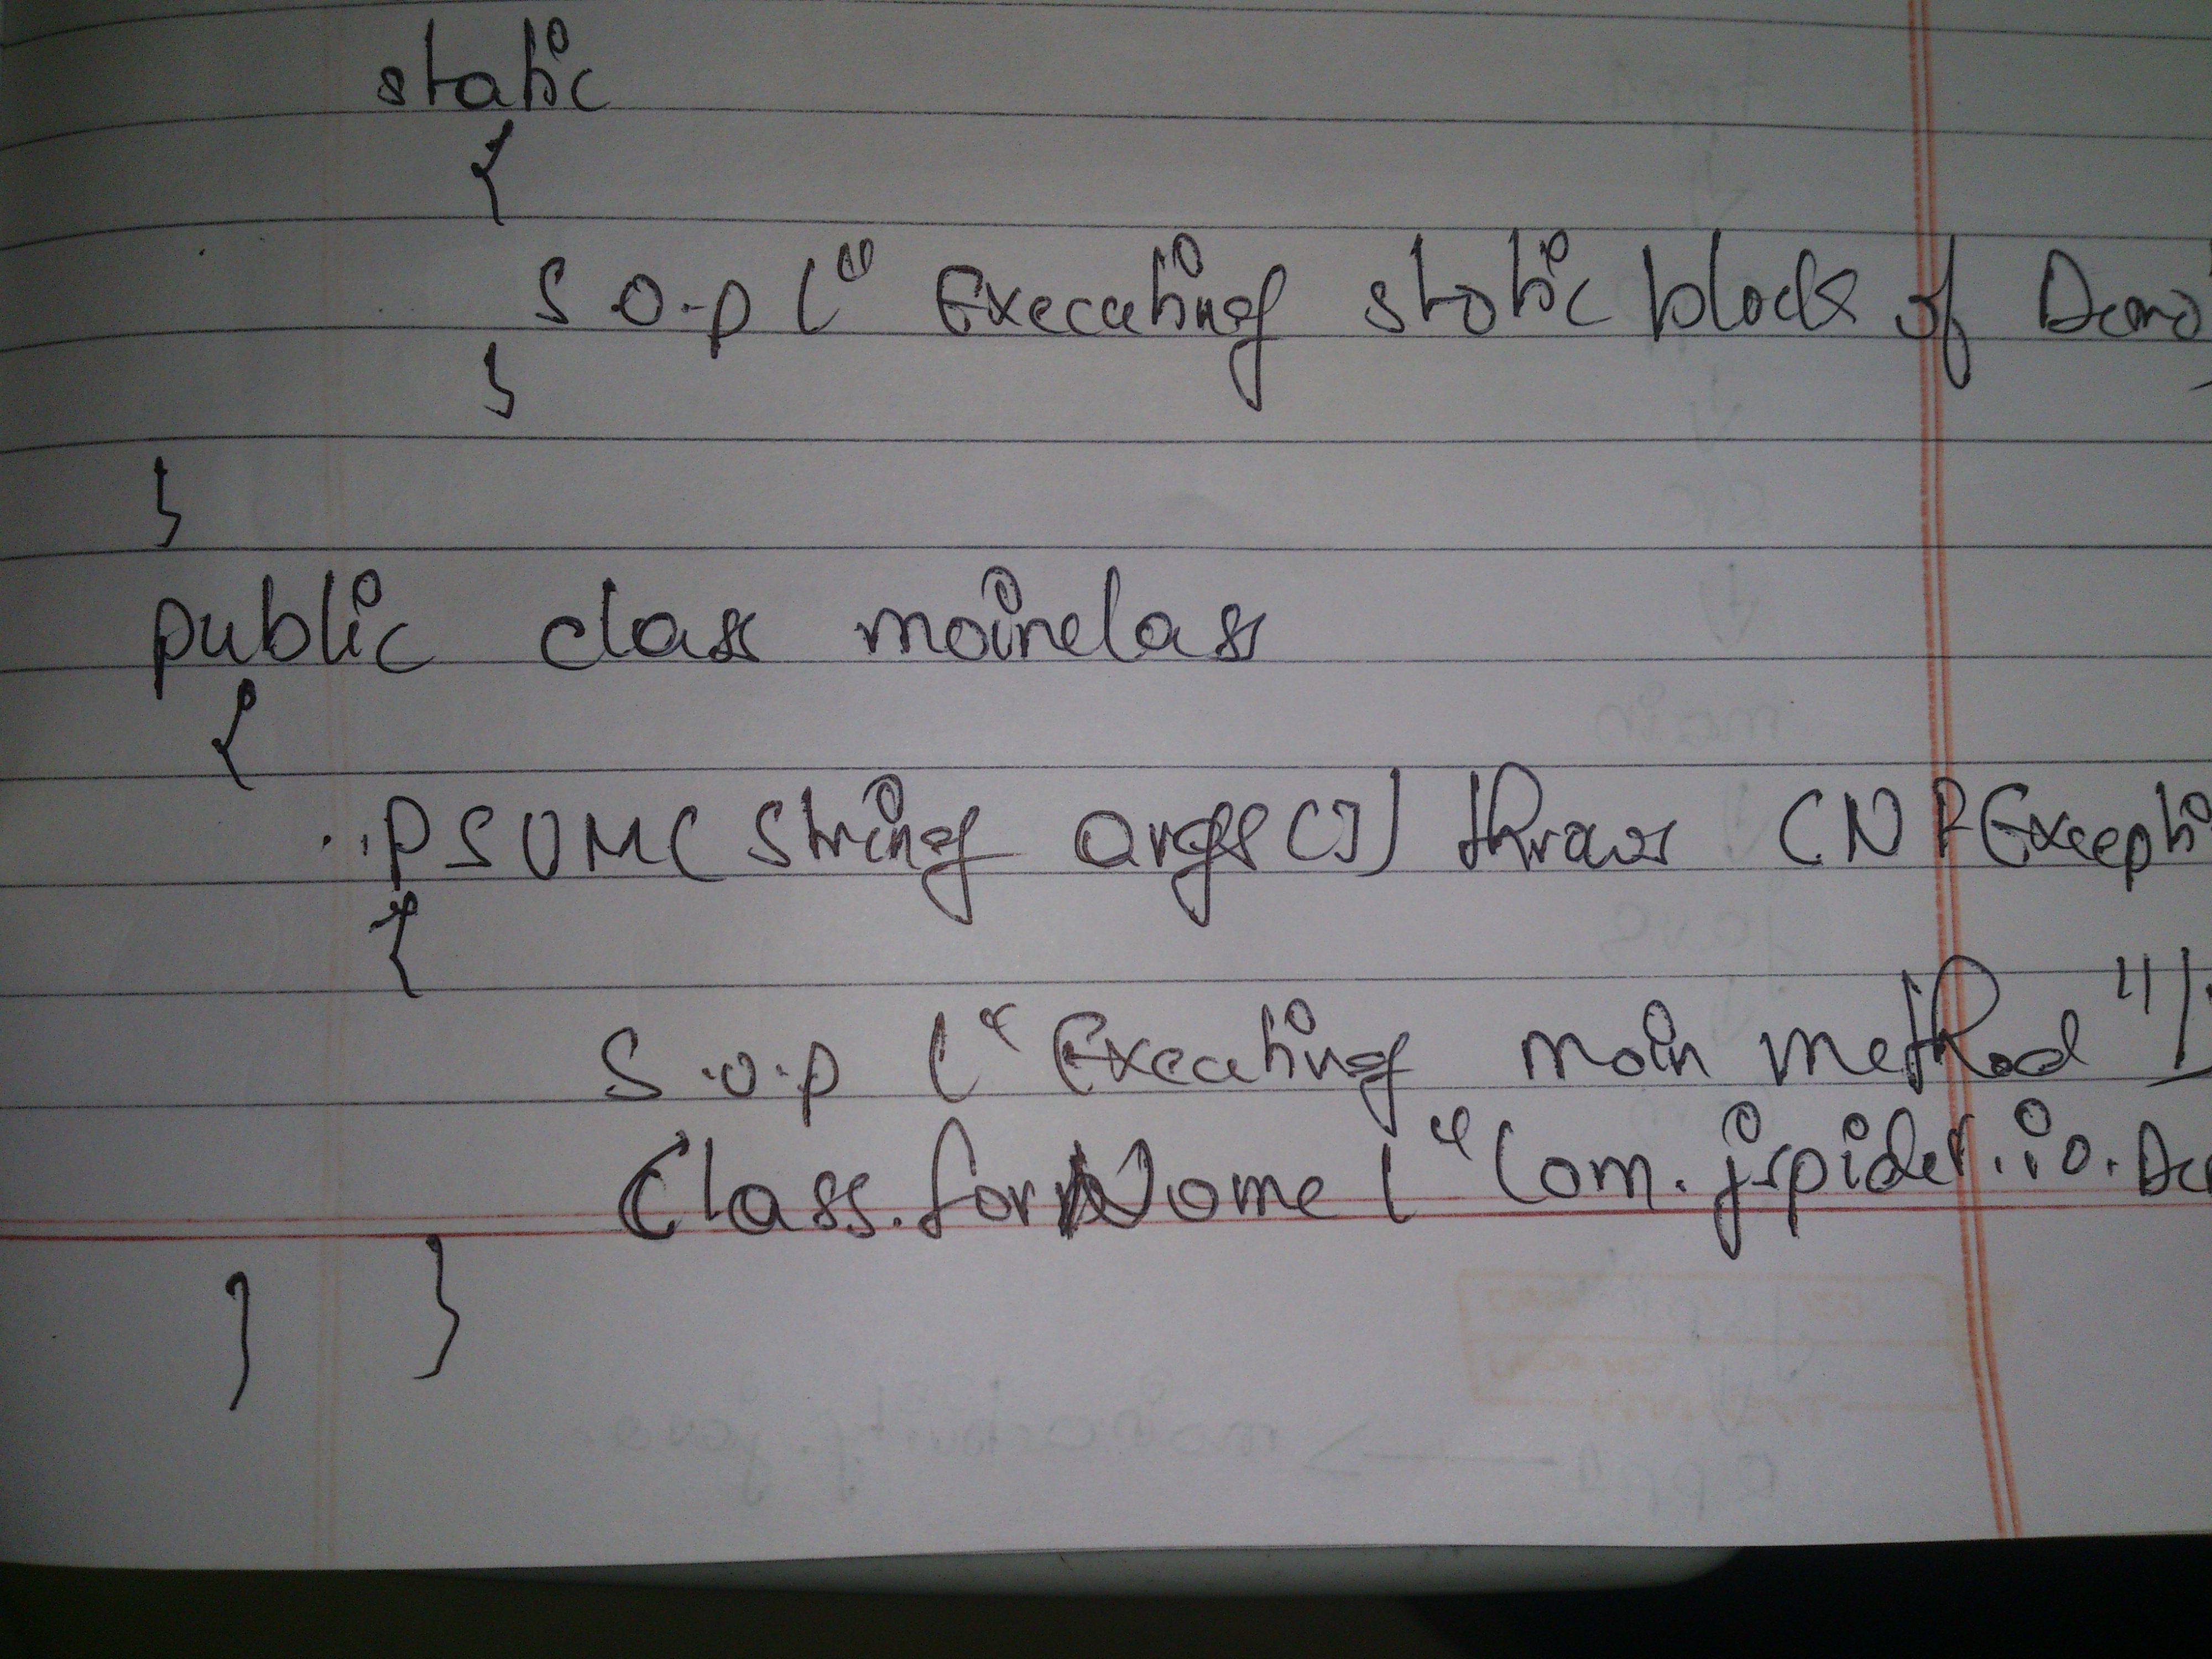 static
{
S.O.P (" Executing static block of Demo
}
}
public class mainclass
{
PSVM( String args[]) throws CNFExcepti
{
S.O.P (" Executing main method ");
Class.forName ( " Com.jspider.io.De
}
}